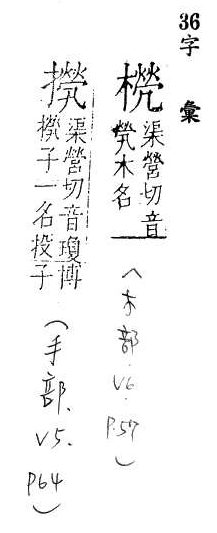 36字 彙
橩
渠營切音
煢木名
(木部. V6. P.57)
渠營切音瓊博
子一名投子
(手部. V5. P64)